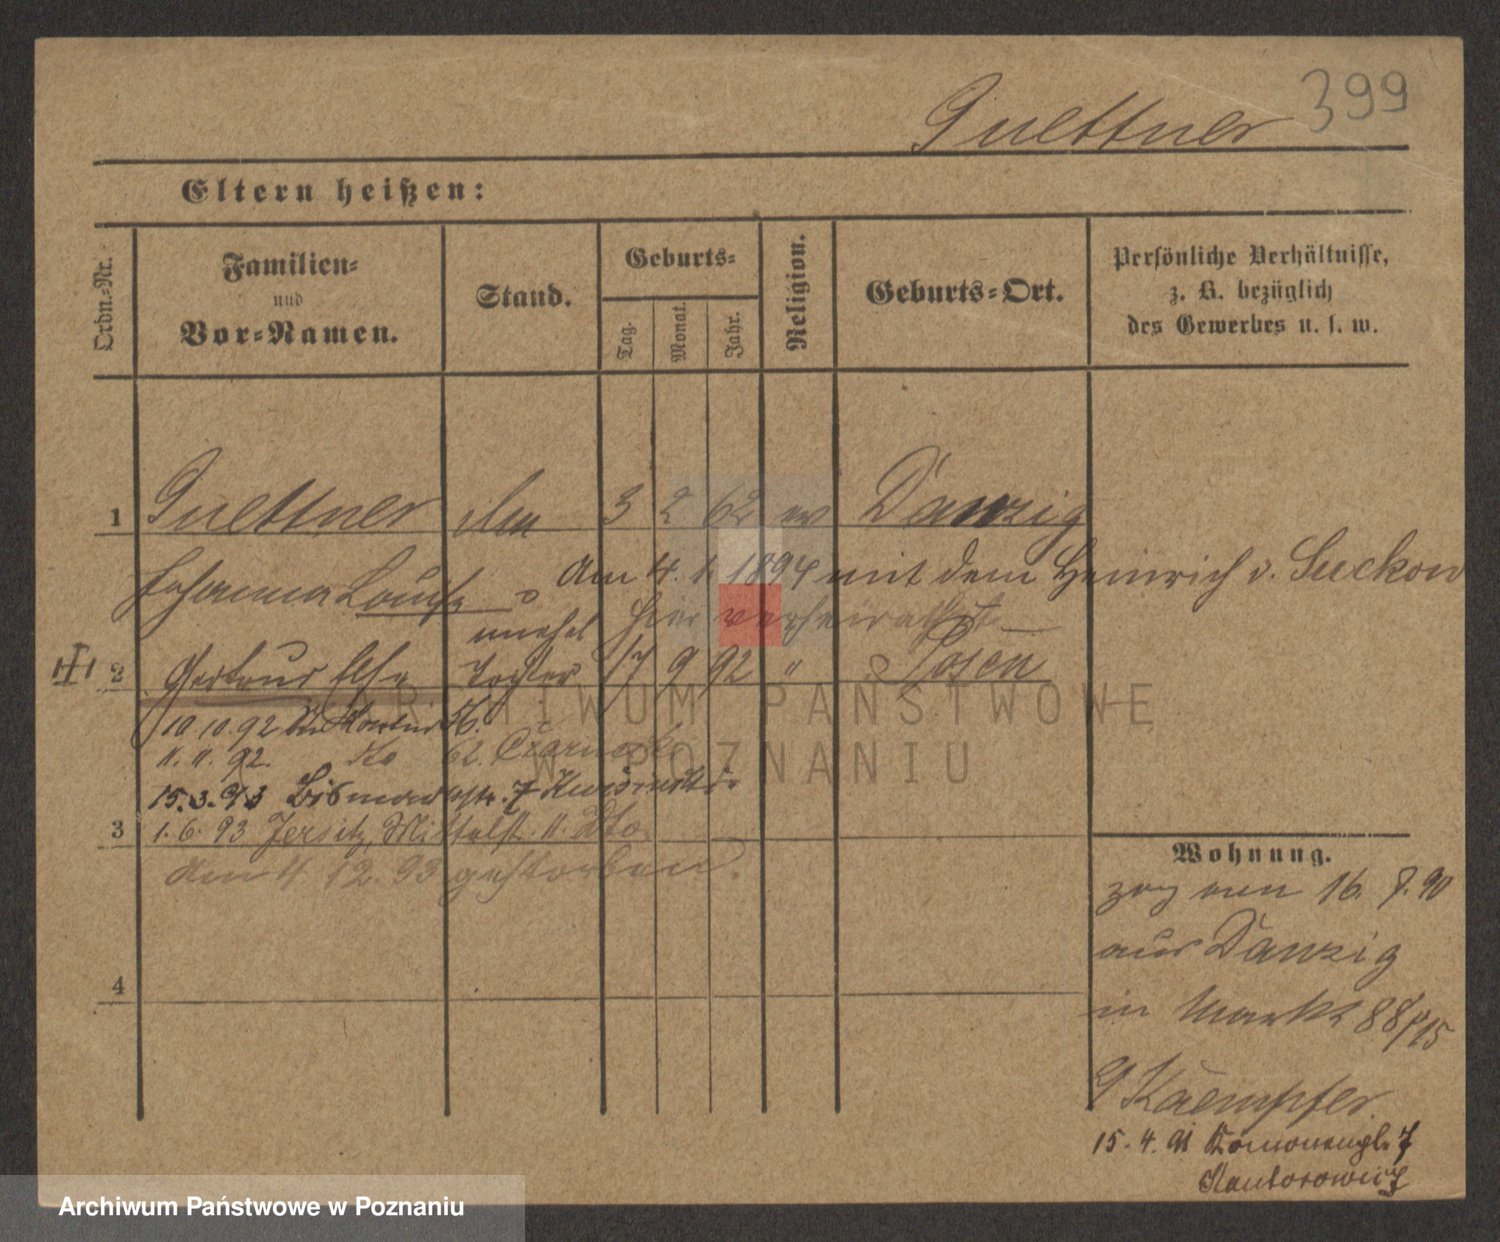 399
Guettner
Eltern heißen:
Ordn.-Nr.
Familien-
und
Vor-Namen.
Stand.
Geburts-
Tag.
Monat.
Jahr.
Religion.
Geburts-Ort.
Persönliche Verhältnisse,
z. B. bezüglich
des Gewerbes u. s. w.
1 Guettner 3 2 62 ev Danzig
Johanna Louise
Am 4. 1. 1894 mit dem Heinrich v. Suckow
hier verheirathet
unehel
2 Gertrud Else Tochter 17 9 92 " Posen
10.10.92 St. Martin
11.11.92. 62.
15.3.93 Bismarckstr. 7
3 1.6.93 Jersitz, Mittelst. 11. dto
Am 4 12. 93 gestorben.
4
Wohnung.
zog von 16. 8. 90
aus Danzig
in Markt 88/
Kaempfer
15.4.91 7
Kantorowicz
ARCHIWUM PAŃSTWOWE
W POZNANIU
Archiwum Państwowe w Poznaniu